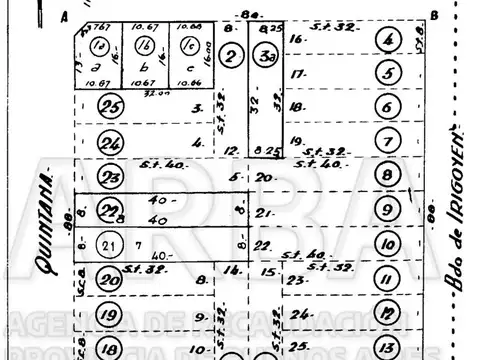 A -80- B
7.67 10.67 10.66 8.- 8.25 s.t.32.- 16.- 4 s.t.8.-
13.- 1a 16.- 1b 16.- 1c 16.00 2 3a
a b c 17.- 5
10.67 10.67 10.66
32.00
25 3.- s.t.32.- 32 32.- 18.- 6
24 4.- 12.- 8.25 19.- 7
s.t.32.-
23 s.t.40.- 5- 20.- s.t.40.- 8
QUINTANA. -88- 8.- 22 8 40.- 40 8.- 21.- 9 -88- Bdo de IRIGOYEN.
8.- 21 7 40.- 8.- 22. 10
s.t.40.-
s.t.8.- 20 s.t.32.- 8.- 14.- 15.- 23.- s.t.32.- 11
19 9.- 24.- 12
18 10.- 25.- 13
ARBA
AGENCIA DE RECAUDACION
PROVINCIA DE BUENOS AIRES